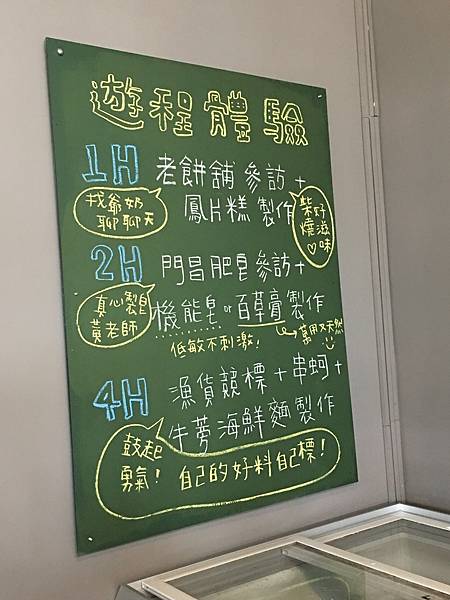 遊程體驗
1H 老餅舖參訪+
鳳片糕製作
找爺奶
聊聊天
柴好
燒滋
♡味
2H 門昌肥皂參訪+
機能皂or百草膏製作
真心製皂
黃老師
低敏不刺激!
萬用又天然
4H 漁貨競標+串蚵+
牛蒡海鮮麵製作
鼓起
勇氣! 自己的好料自己標!